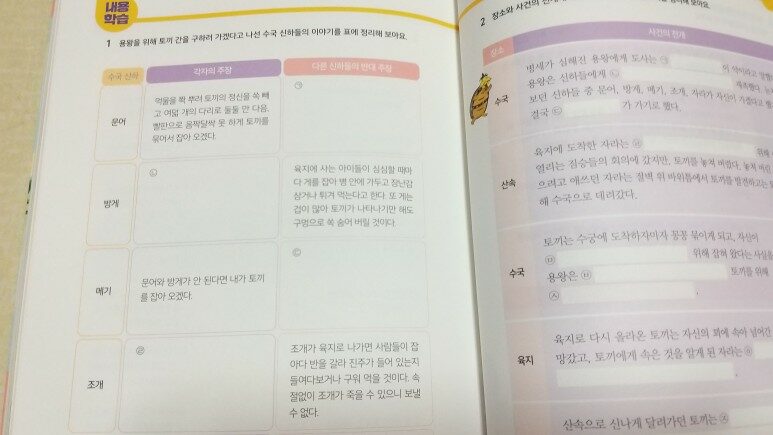 내용
학습
1 용왕을 위해 토끼 간을 구하러 가겠다고 나선 수국 신하들의 이야기를 표에 정리해 보아요.
수국 신하
각자의 주장
다른 신하들의 반대 주장
문어
먹물을 쫙 뿌려 토끼의 정신을 쏙 빼
고 여덟 개의 다리로 둘둘 만 다음,
빨판으로 옴짝달싹 못 하게 토끼를
묶어서 잡아 오겠다.
㉠
방게
㉡
육지에 사는 아이들이 심심할 때마
다 게를 잡아 병 안에 가두고 장난감
삼거나 튀겨 먹는다고 한다. 또 게는
겁이 많아 토끼가 나타나기만 해도
구멍으로 쏙 숨어 버릴 것이다.
메기
문어와 방게가 안 된다면 내가 토끼
를 잡아 오겠다.
㉢
조개
㉣
조개가 육지로 나가면 사람들이 잡
아다 반을 갈라 진주가 들어 있는지
들여다보거나 구워 먹을 것이다. 속
절없이 조개가 죽을 수 있으니 보낼
수 없다.
2 장소와 사건의
보아요.
장소
사건의 전개
수국
병세가 심해진 용왕에게 도사는 ㉠
용왕은 신하들에게 ㉡
보던 신하들 중 문어, 방게, 메기, 조개, 자라가 자신이 가겠다고
결국 ㉢ 가 가기로 했다.
산속
육지에 도착한 자라는 ㉣ 위해
열리는 짐승들의 회의에 갔지만, 토끼를 놓쳐 버렸다.
으려고 애쓰던 자라는 절벽 위 바위틈에서 토끼를 발견하고는
해 수국으로 데려갔다.
수국
토끼는 수궁에 도착하자마자 꽁꽁 묶이게 되고, 자신이
㉤ 위해 잡혀 왔다는 사실을
용왕은 ㉥ 토끼를 위해
㉦
육지
육지로 다시 올라온 토끼는 자신의 꾀에 속아 넘어간
망갔고, 토끼에게 속은 것을 알게 된 자라는 ㉧
산속으로 신나게 달려가던 토끼는 ㉨